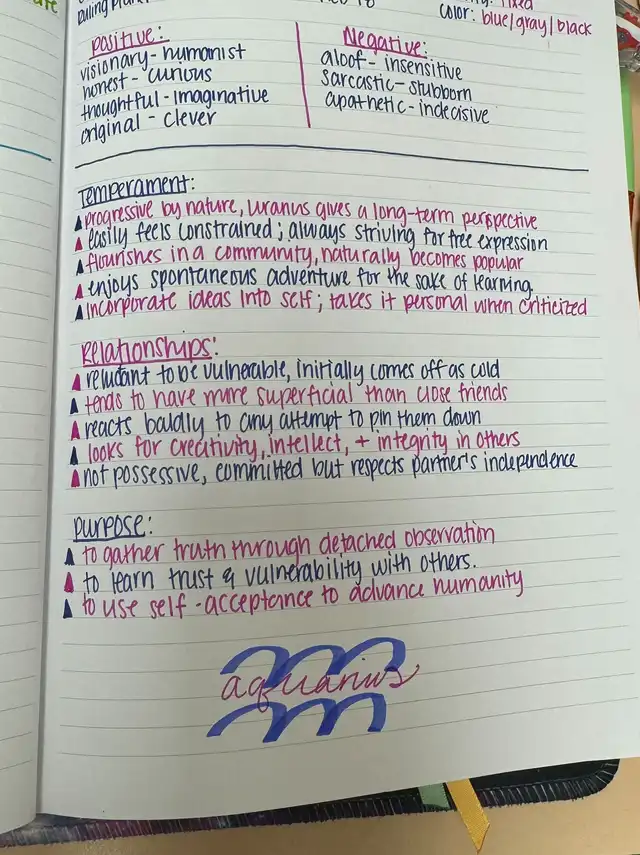 ruling plan
fixed
color: blue/gray/black
positive:
visionary - humanist
honest - curious
thoughtful - imaginative
original - clever
Negative:
aloof - insensitive
sarcastic - stubborn
apathetic - indecisive
Temperament:
progressive by nature, Uranus gives a long-term perspective
easily feels constrained; always striving for free expression
flourishes in a community, naturally becomes popular
enjoys spontaneous adventure for the sake of learning.
incorporate ideas into self; takes it personal when criticized
Relationships:
reluctant to be vulnerable, initially comes off as cold
tends to have more superficial than close friends
reacts baldly to any attempt to pin them down
looks for creativity, intellect, + integrity in others
not possessive, committed but respects partner's independence
purpose:
to gather truth through detached observation
to learn trust & vulnerability with others.
to use self-acceptance to advance humanity
aquarius